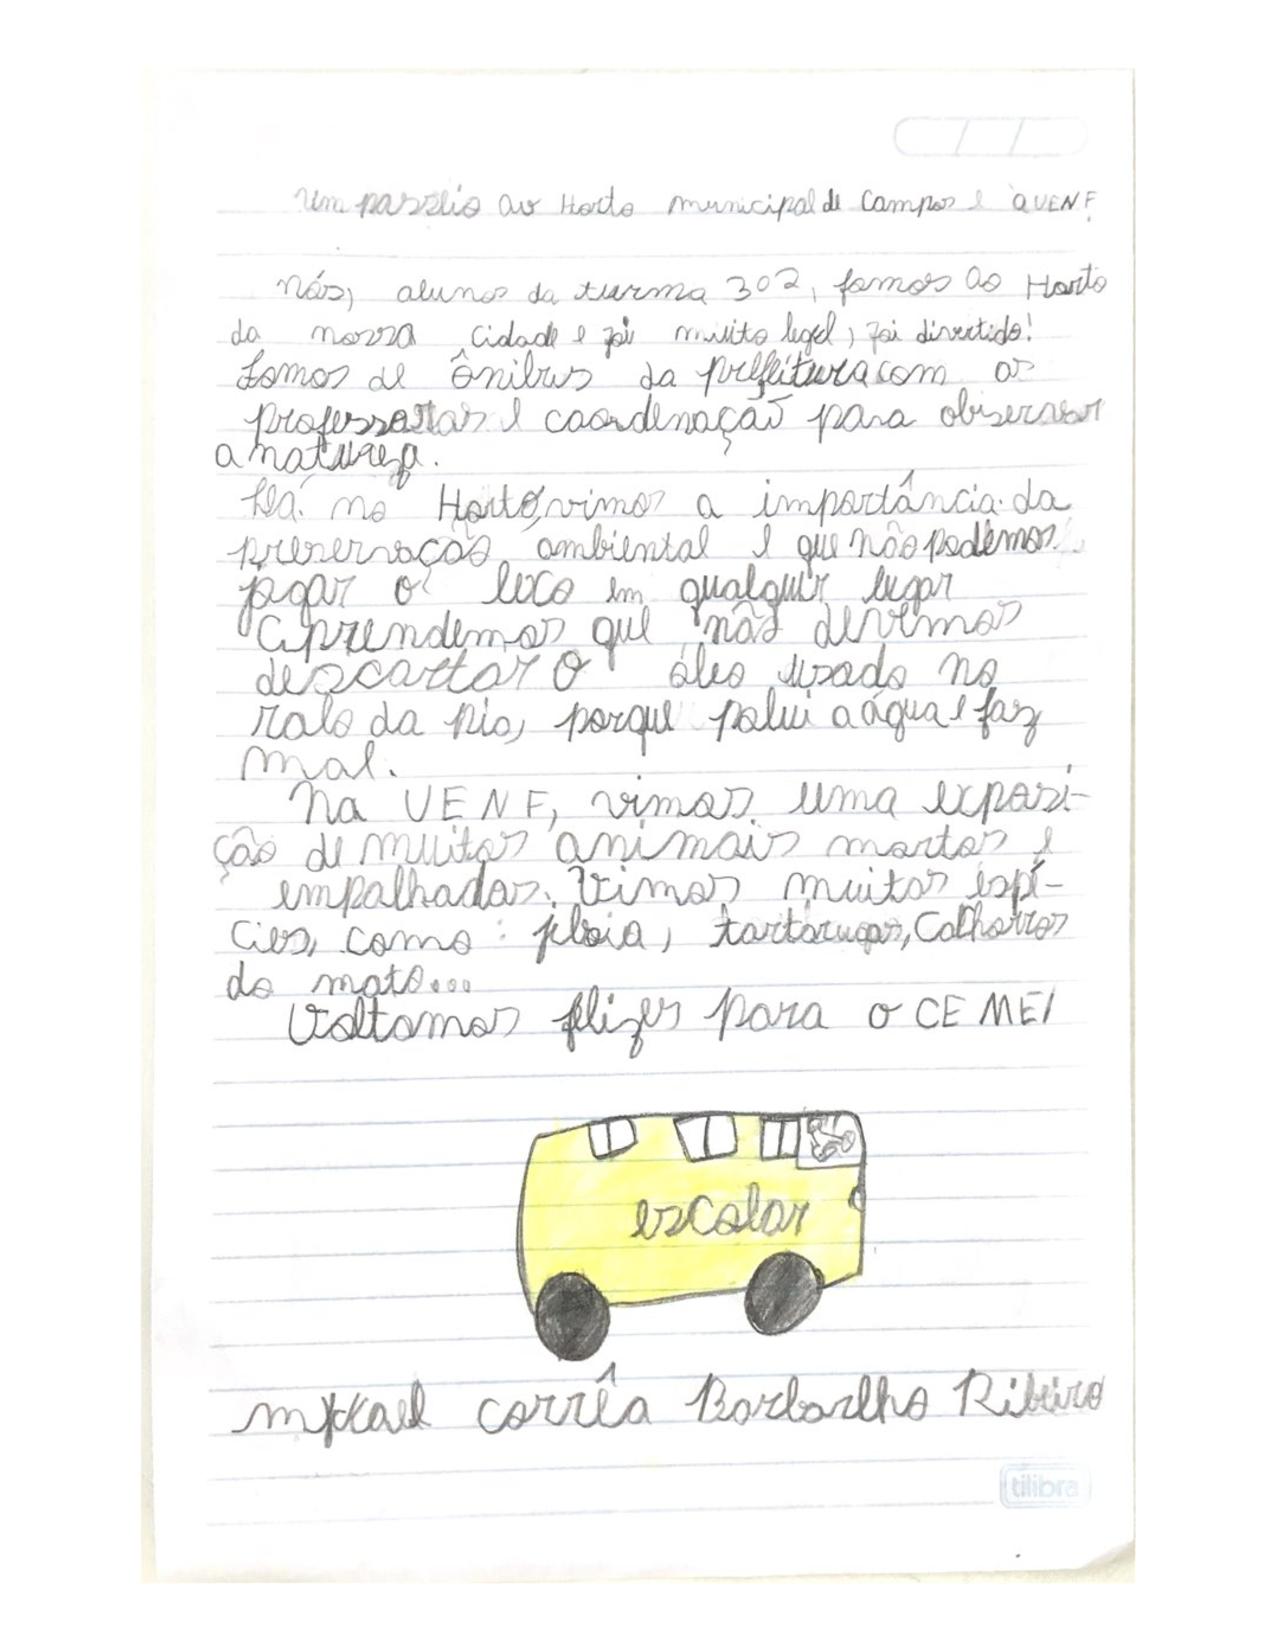 Um passeio ao Horto municipal de Campos e à UENF.
Nós, alunos da turma 302, fomos ao Horto
da nossa cidade e foi muito legal, foi divertido!
Fomos de ônibus da prefeitura com os
professoras e coordenação para observar
a natureza.
Lá no Horto, vimos a importância da
preservação ambiental e que não podemos
jogar o lixo em qualquer lugar
Aprendemos que não devemos
descartar o óleo usado no
ralo da pia, porque polui a água e faz
mal.
Na UENF, vimos uma exposi-
ção de muitos animais mortos e
empalhados. Vimos muitas espé-
cies, como: jiboia, tartarugas, Cachorros
do mato...
Voltamos felizes para o CEMEI
escolar
Corrêa Barbarlho Ribeiro
tilibra